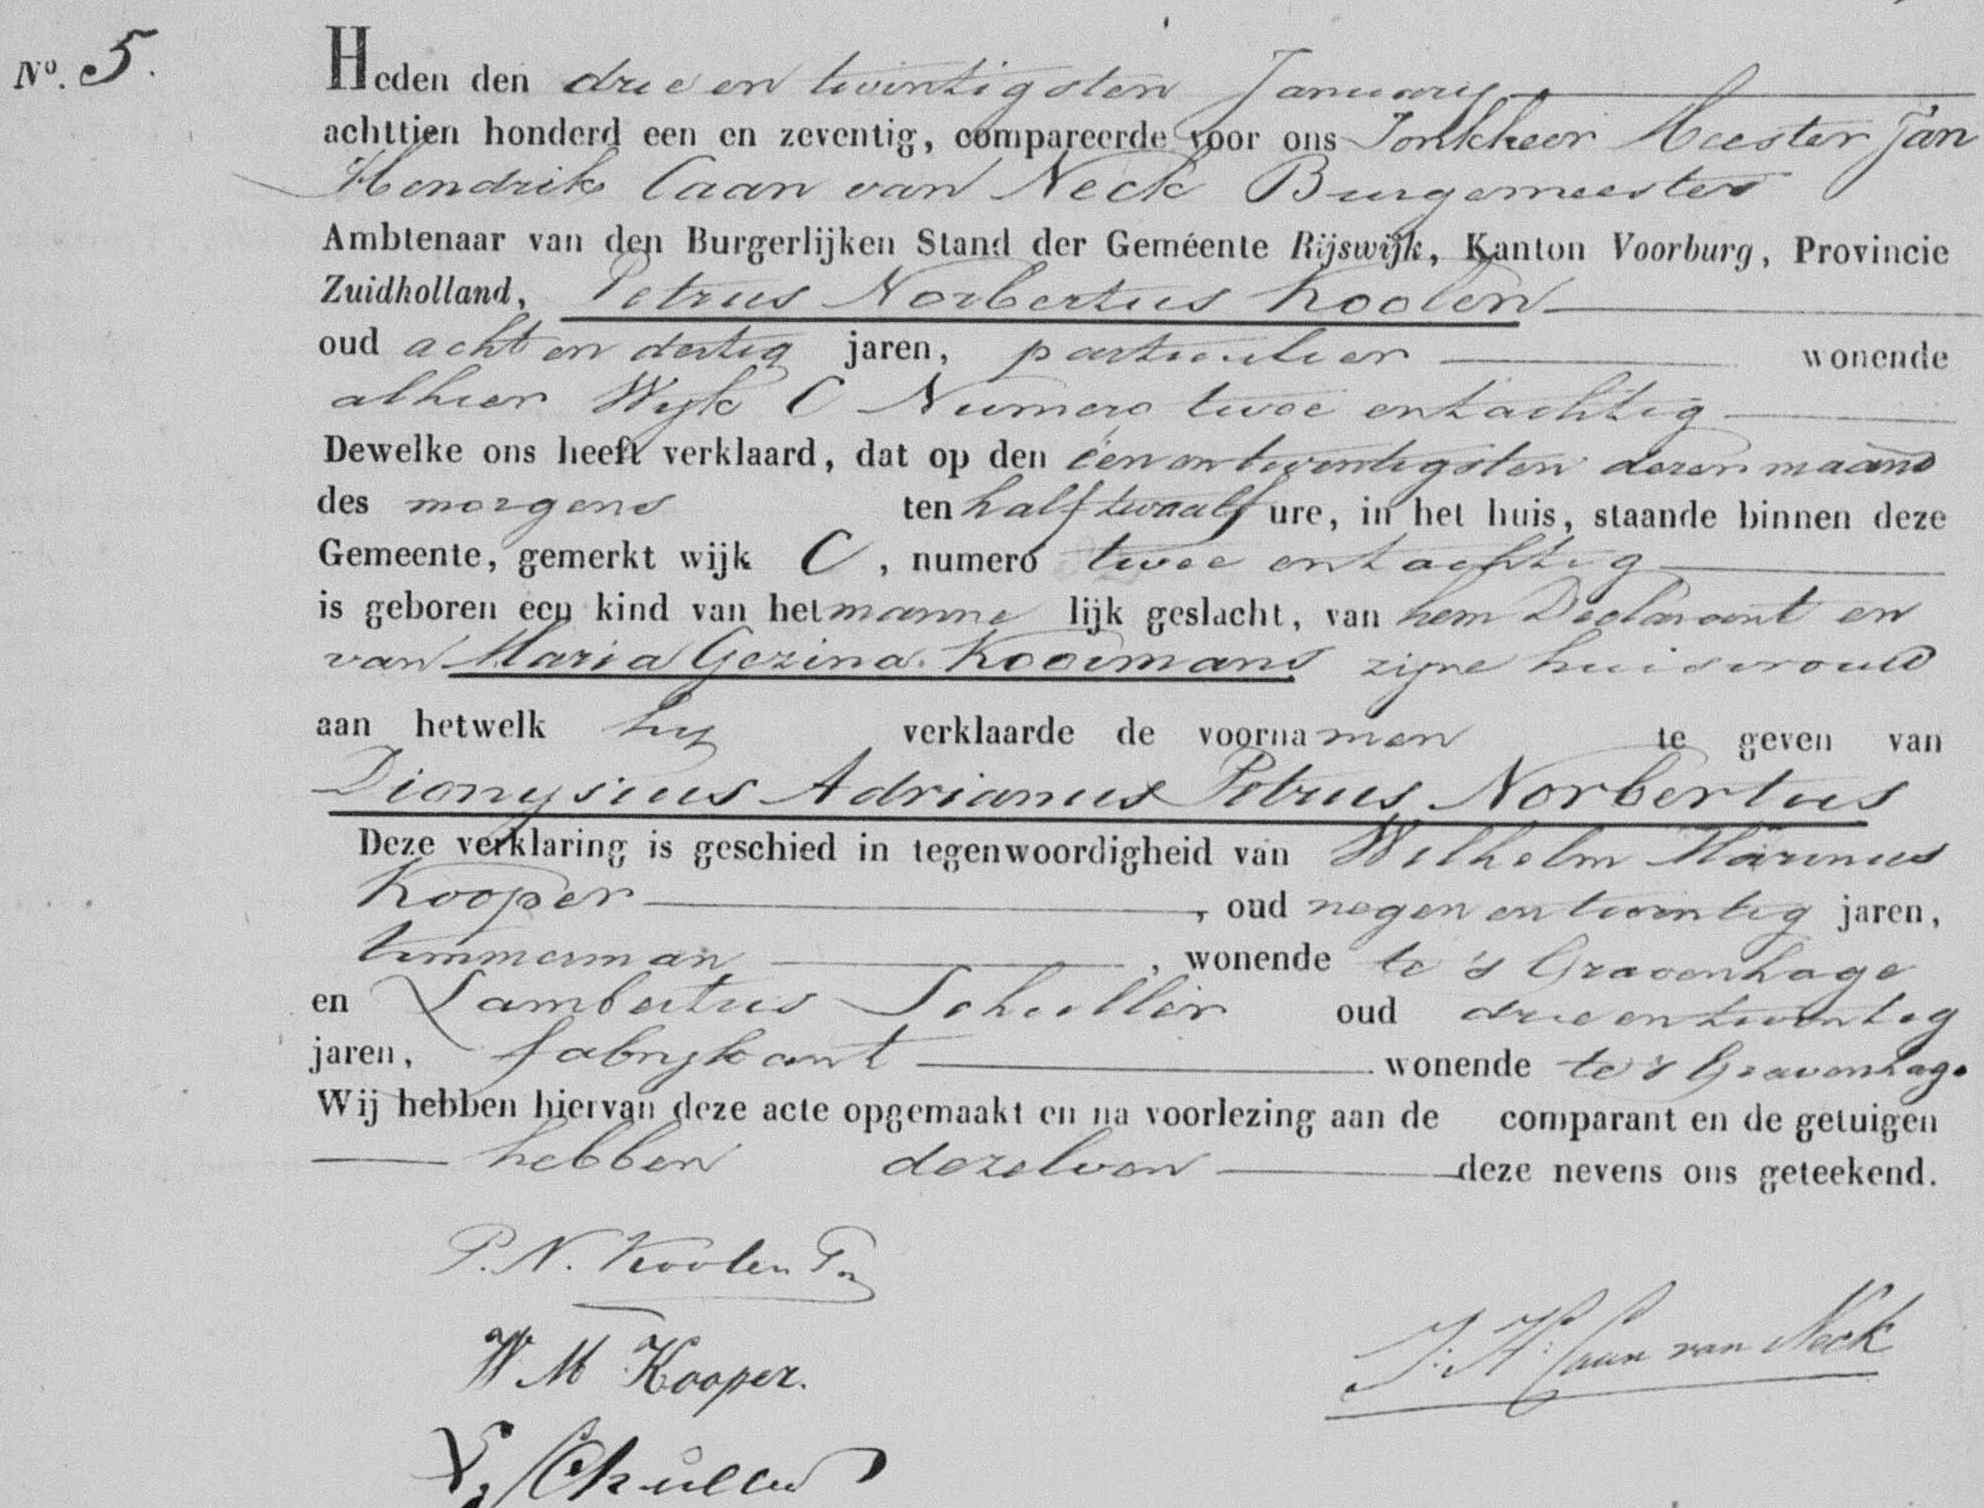 No. 5.
Heden den drie en twintigsten January
achttien honderd een en zeventig, compareerde voor ons Jonkheer Meester Jan
Hendrik Caan van Neck Burgemeester
Ambtenaar van den Burgerlijken Stand der Geméente Rijswijk, Kanton Voorburg, Provincie
Zuidholland, Petrus Norbertus Koolen
oud acht en dertig jaren, particulier wonende
alhier Wyk C Numero twee en tachtig
Dewelke ons heeft verklaard, dat op den éen en twintigsten dezer maand
des morgens ten half twaalf ure, in het huis, staande binnen deze
Gemeente, gemerkt wijk C, numero twee en tachtig
is geboren een kind van het manne lijk geslacht, van hem Declarant en
van Maria Gezina Kooimans zijne huisvrouw
aan hetwelk hy verklaarde de voorna men te geven van
Dionysius Adrianus Petrus Norbertus
Deze verklaring is geschied in tegenwoordigheid van Wilhelm Marinus
Kooper, oud negen en twintig jaren,
timmerman, wonende te 's Gravenhage
en Lambertus Schuller oud drie en twintig
jaren, fabrykant wonende te 's Gravenhage
Wij hebben hiervan deze acte opgemaakt en na voorlezing aan de comparant en de getuigen
hebben dezelven deze nevens ons geteekend.
P. N. Koolen Pz
W. M Kooper.
J. H. Caan van Neck
L. Schuller